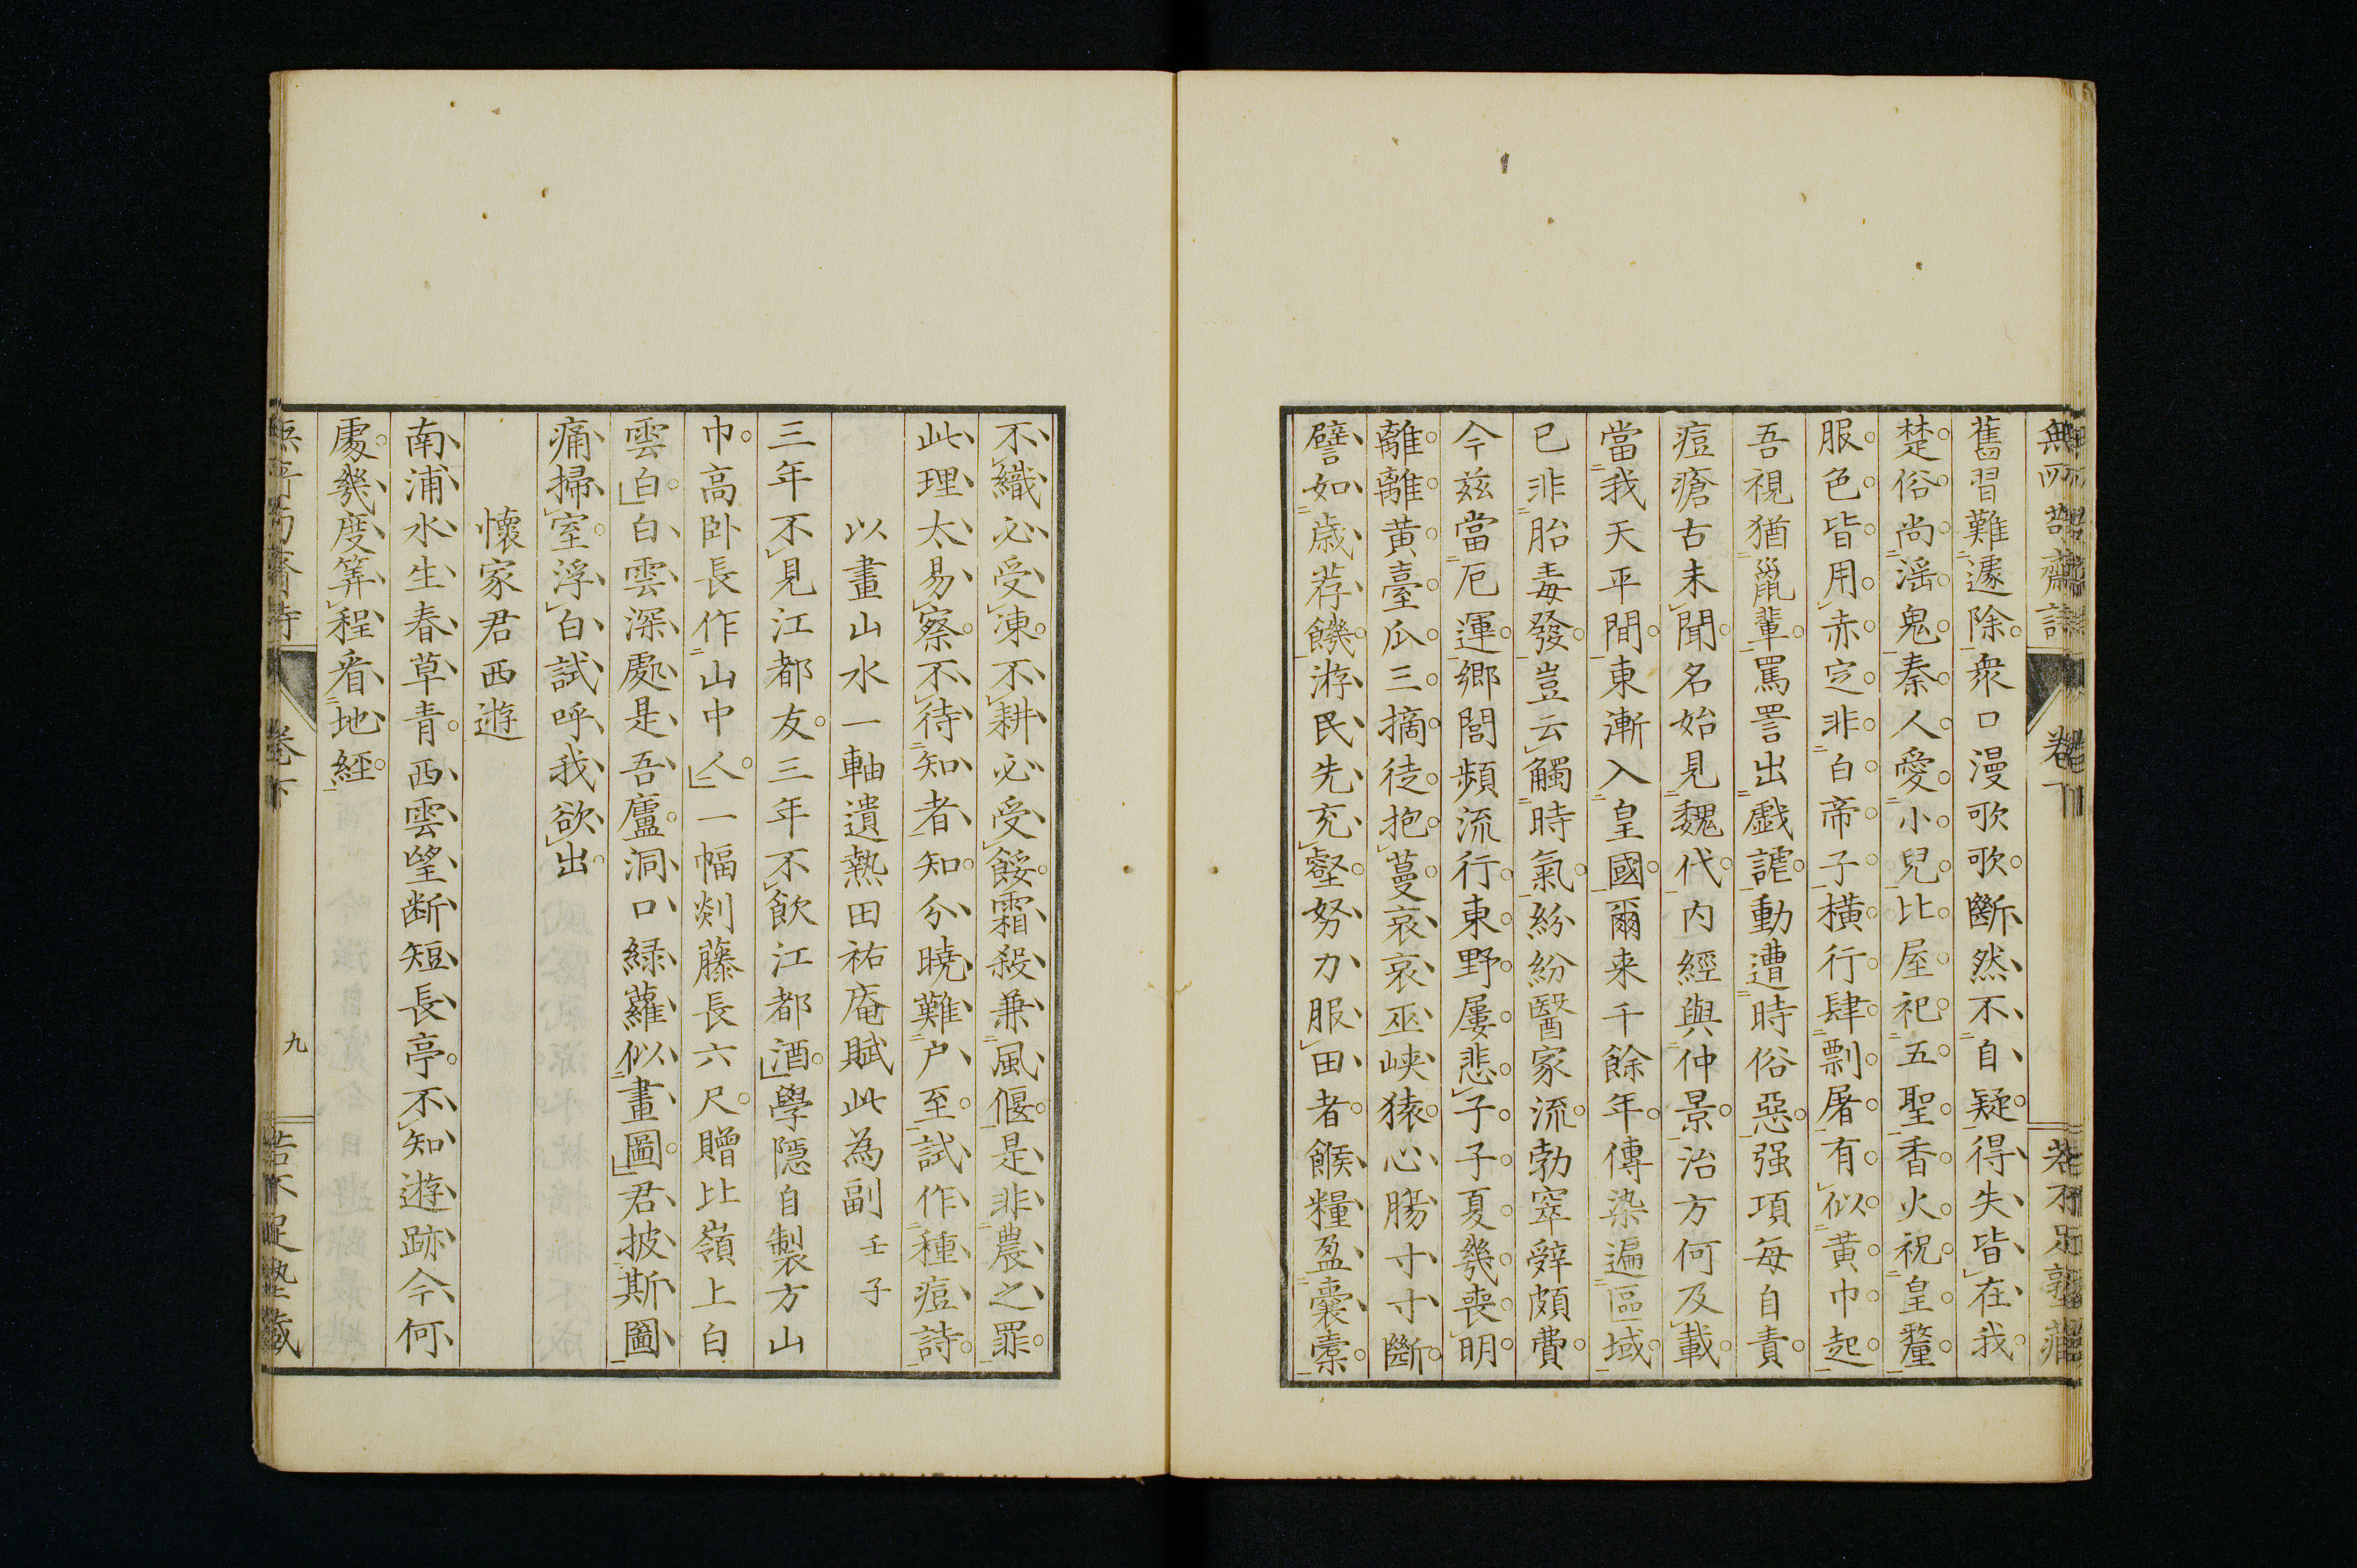 舊習難遽除衆口漫歌歌斷然不自疑得失皆在我
楚俗尚淫鬼秦人愛小兒比屋祀五聖香火祝皇釐
服色皆用赤定非白帝子橫行肆剽屠有似黄巾起
吾視猶鼠輩罵詈出戯謔動遭時俗惡强項每自責
痘瘡古未聞名始見魏代内經與仲景治方何及載
當我天平間東漸入皇國爾来千餘年傳染遍區域
已非胎毒發豈云觸時氣紛紛醫家流勃窣辭頗費
今兹當厄運鄉閭頻流行東野屢悲子子夏幾喪明
離離黄臺瓜三摘徒抱蔓哀哀巫峡猿心腸寸寸斷
譬如歳荐饑游民先充壑努力服田者餱糧盈囊橐
不織必受凍不耕必受餒霜殺兼風偃是非農之罪
此理太易察不待知者知分曉難户至試作種痘詩
以畫山水一軸遺熱田祐庵賦此為副 壬子
三年不見江都友三年不飲江都酒學隱自製方山
巾高卧長作山中人一幅剡藤長六尺贈比嶺上白
雲白白雲深處是吾廬洞口緑蘿似畫圖君披斯圖
痛掃室浮白試呼我欲出
懷家君西遊
南浦水生春草青西雲望断短長亭不知遊跡今何
處幾度筭程看地經
卷下
九